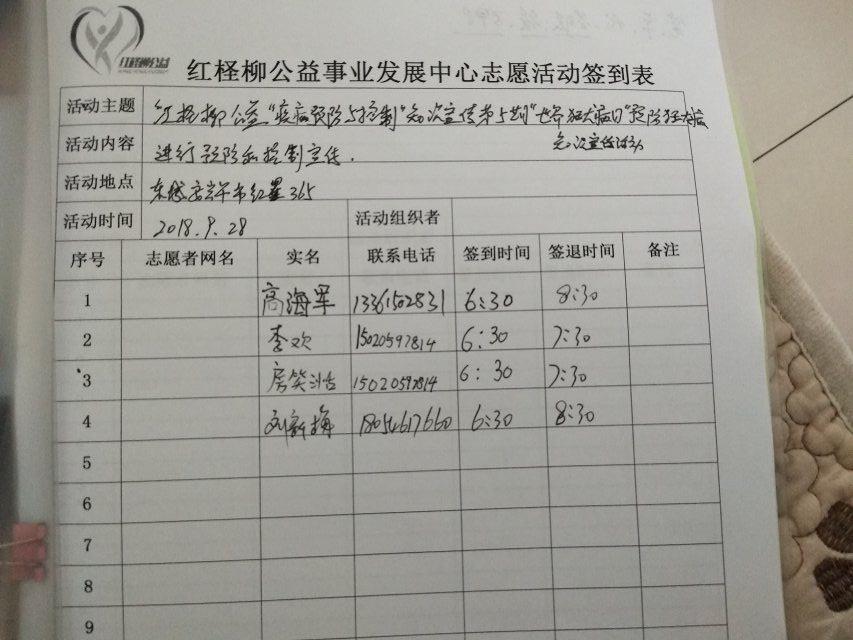 红柽柳公益
红柽柳公益事业发展中心志愿活动签到表
活动主题 红柽柳公益"疾病预防与控制"知识宣传第5期"世界狂犬病日"预防狂犬病
知识宣传活动
活动内容 进行预防和控制宣传.
活动地点 东城 红星365
活动时间 2018.9.28 活动组织者
序号 志愿者网名 实名 联系电话 签到时间 签退时间 备注
1 高海军 13361502831 6:30 8:30
2 李欢 15020597814 6:30 7:30
3 房笑浩 15020597814 6:30 7:30
4 刘新梅 18054617660 6:30 8:30
5
6
7
8
9